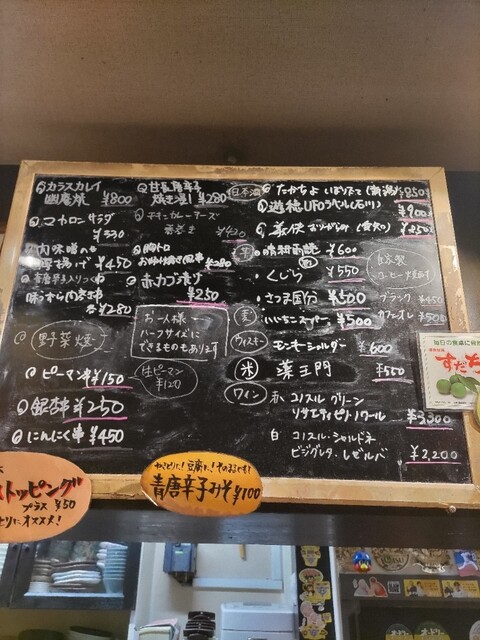 カラスカレイ
幽庵焼 ¥800
マカロニサラダ
¥330
肉味噌の
厚揚げ ¥450
青唐辛子入りつくね
¥280
野菜焼き
ピーマン串 ¥150
銀杏串 ¥250
にんにく串 ¥450
甘長唐辛子
焼き浸し ¥280
チキンカレーチーズ
春巻き ¥430
¥280
赤カブ漬け
¥250
お一人様
ハーフサイズに
できるものもあります
生ピーマン
¥120
日本酒
たかちよ (新潟) ¥850
遊穂UFOラベル(石川)
¥900
(愛知) ¥850
芋
晴耕雨読 ¥600
くじら ¥550
さつま国分 ¥500
麦
いいちこスーパー ¥500
ウィスキー
モンキーショルダー ¥600
米
薬王門 ¥550
ワイン
赤 コノスル グリーン
リサエティピノノワール ¥3,300
白 コノスル・シャルドネ
ビシグレタ・レゼルバ
¥2,200
自家製
コーヒー
ブラック ¥450
カフェオレ ¥500
毎日の食卓に
すだち
トッピング
プラス ¥50
にオススメ!
やきとりに!豆腐に!そのままでも!
青唐辛子みそ ¥100